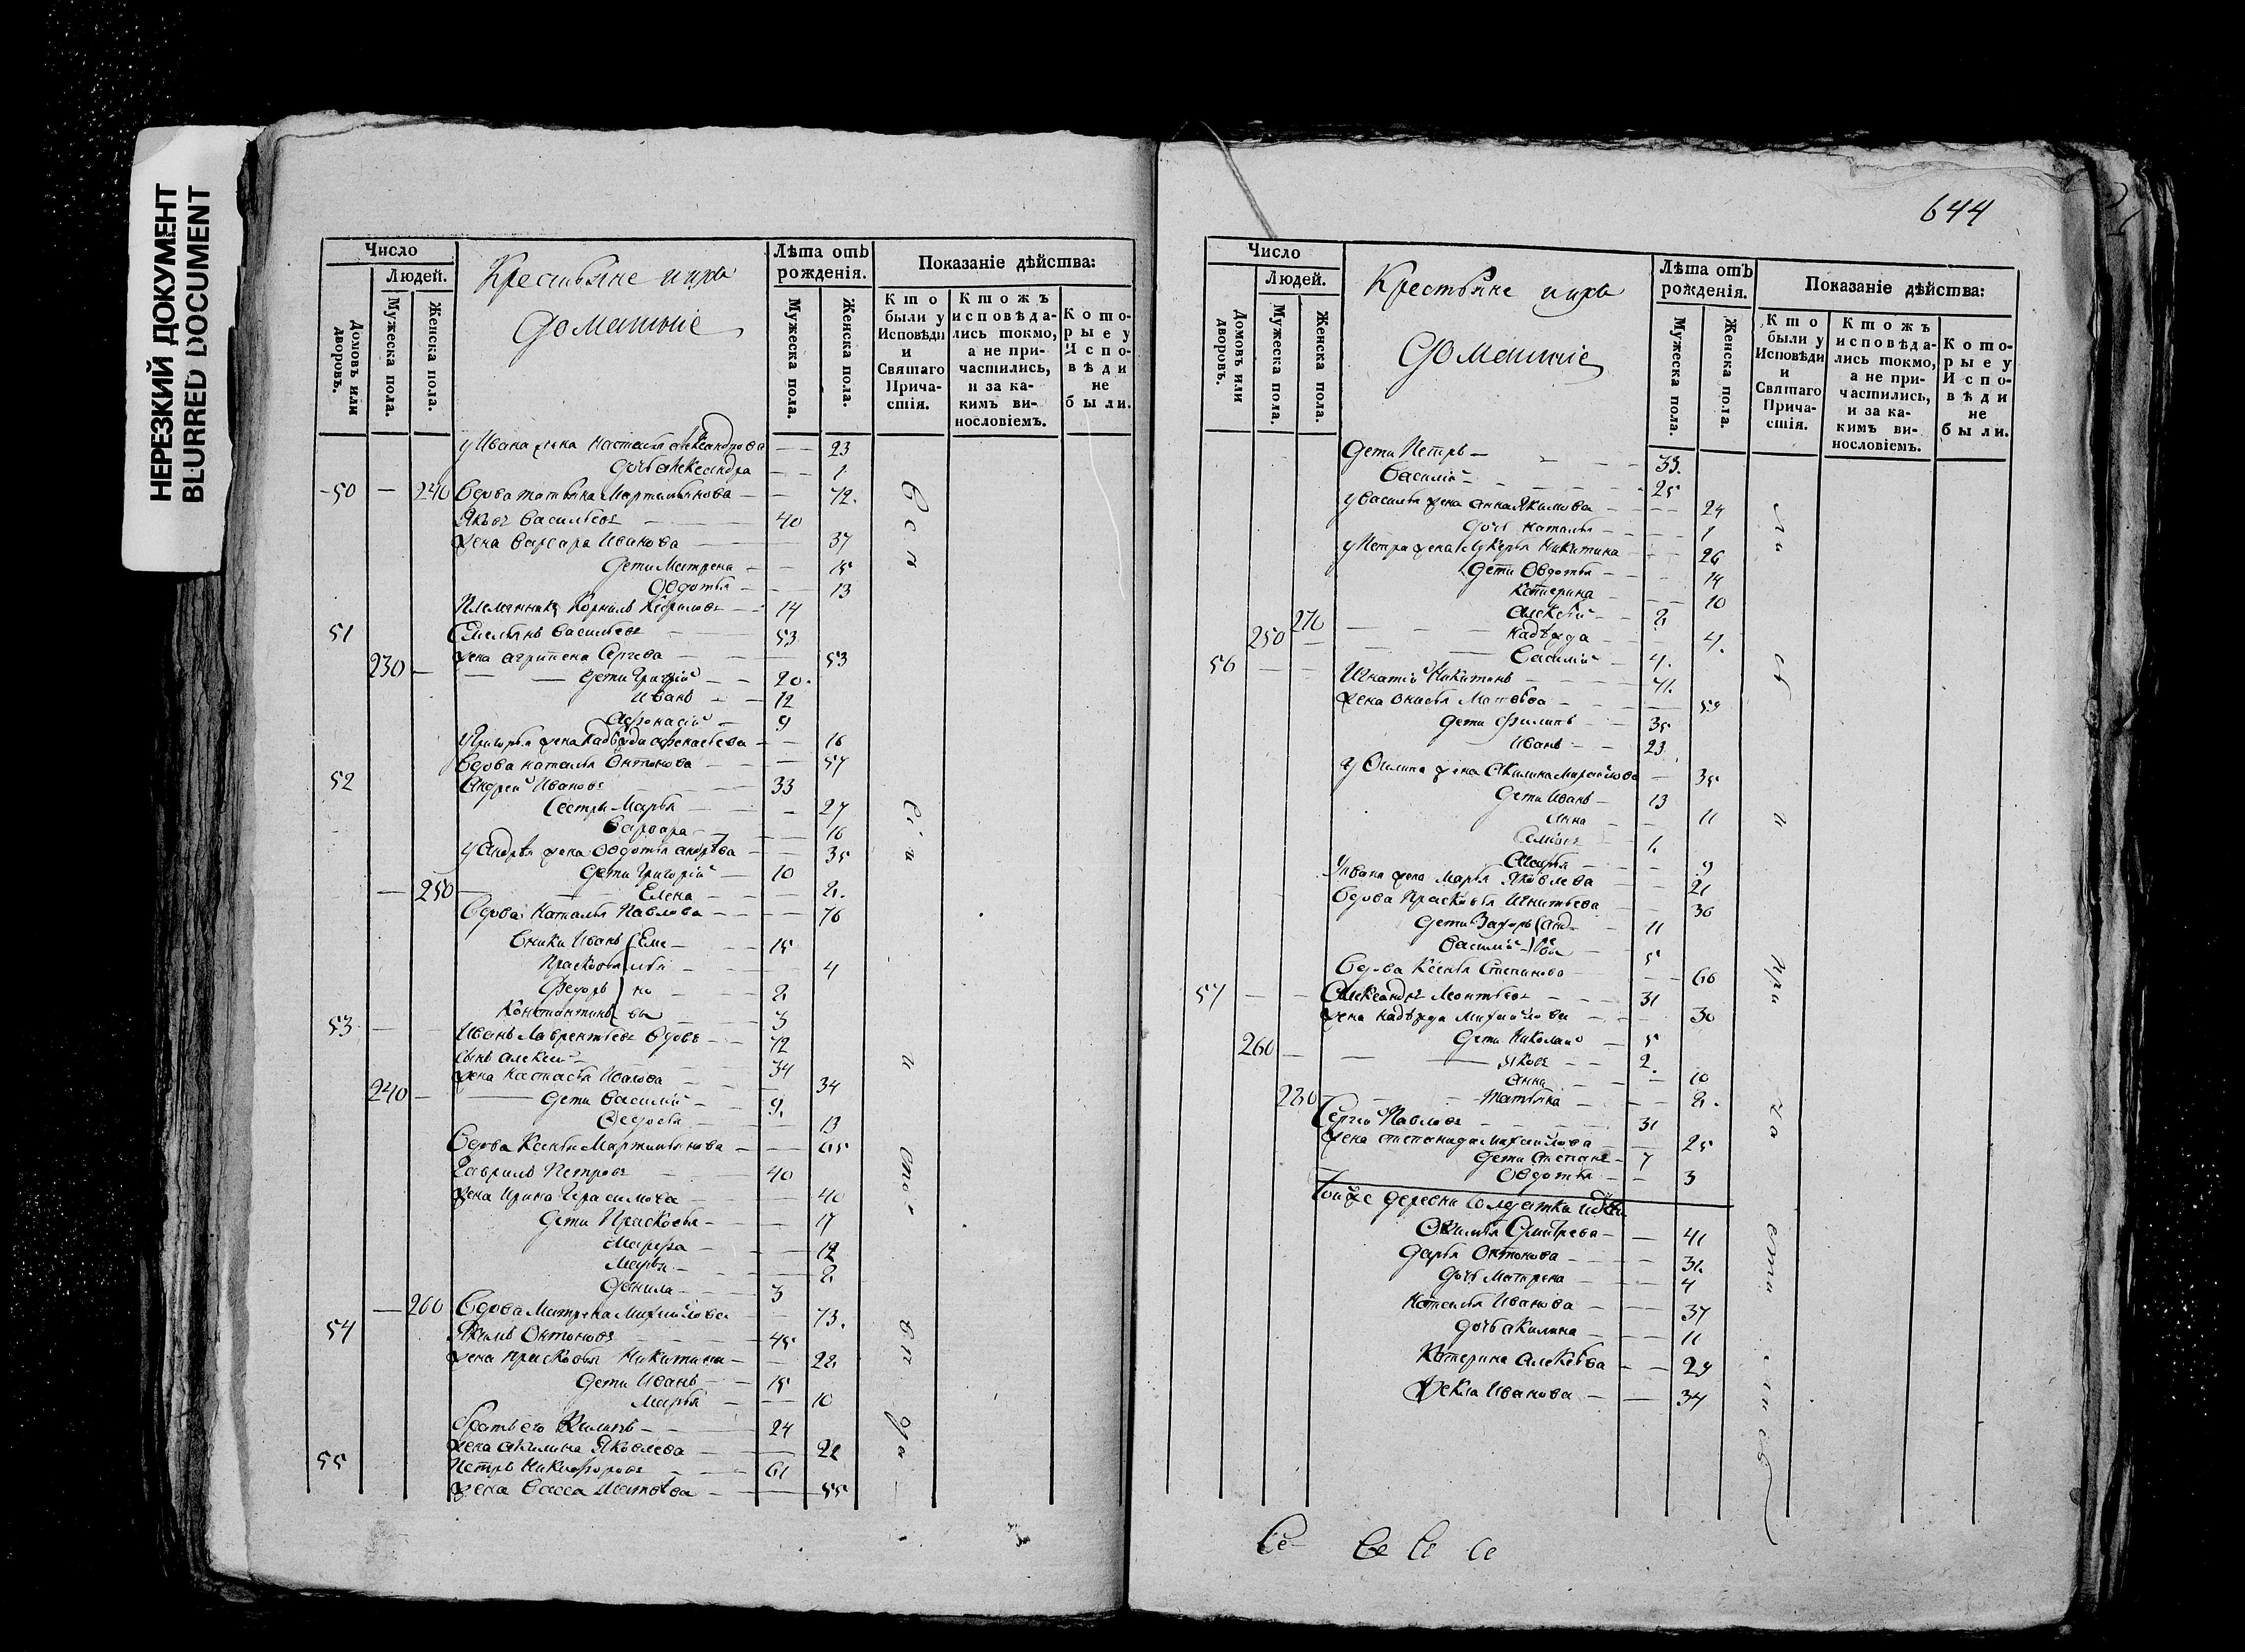 НЕРЕЗКИЙ ДОКУМЕНТ
BLURRED DOCUMENT
Число
Людей.
Домовъ или дворовъ.
Мужеска пола.
Женска пола.
Крестьяне и ихъ
домашніе
Лѣта отъ рожденія.
Мужеска пола.
Женска пола.
Показаніе дѣйства:
Кто были у Исповѣди и Святаго Причастія.
Ктожъ исповѣдались токмо, а не причастились, и за какимъ винословіемъ.
Которые у Исповѣди не были.
у Ивана жена Настасья Александрова — — 23
дочь Александра — — 1
50 — 240 Вдова Татьяна Мартемьянова — — 72.
Яковъ Васильевъ — 40
жена Варвара Иванова — 37
дети Матрена — — 15
Овдотья — — 13
Племянникъ Корнилъ — 14
51 Емельянъ Васильевъ — 53
230 — жена Агрипена Сергева — — 53
— — дети Григрій — — 20.
Иванъ — — 12
Афонасій — 9
у Григорья жена Надежда Афонасьева — — 16
Вдова Наталья Онтонова — — 57
52 Андрей Ивановъ — 33
Сестры Марья — — 27
Варвара — — 16
у Андрея жена Овдотья Андрева — — 35
дети Григорій — 10
— 250 — Елена — — 2.
Вдова Наталья Павлова — — 76
Внуки Иванъ (Еме — 15
Прасковья лья — 4
Федоръ) но — 2
Константинъ ва — 3
53 — — Иванъ Лаврентьевъ вдовъ — 72
сынъ Алексей — 34
жена Настасья Иванова — 34
240 — дети Василій — 9.
Федосья — 13
Вдова Ксенья Мартемьянова — — 65
Гаврилъ Петровъ — 40
жена Ирина Герасимова — 40
дети Прасковья — — 17
Марфа — — 12
Марья — — 2.
Данила — — 3
— 260 Вдова Матрена Михайлова — 73.
54 Якимъ Онтоновъ — 45
жена Прасковья Никитина — — 22
дети Иванъ — 15
Марья — — 10
братъ его Филипъ — 24
жена Акилина Яковлева — — 22
55 Петръ Никифоровъ — 61
жена Васса Матвева — — 55
644
Число
Людей.
Домовъ или дворовъ.
Мужеска пола.
Женска пола.
Крестьяне и ихъ
домашніе
Лѣта отъ рожденія.
Мужеска пола.
Женска пола.
Показаніе дѣйства:
Кто были у Исповѣди и Святаго Причастія.
Ктожъ исповѣдались токмо, а не причастились, и за какимъ винословіемъ.
Которые у Исповѣди не были.
дети Петръ — 33.
Василій — 25
у Василья жена Анна Якимова — — 24
дочь Наталья — — 1
у Петра жена Лукерья Никитина — — 26
дети Овдотья — — 14
Катерина — — 10
Алексѣй — 2.
250 270 — — Надежда — 4.
Василій — 4.
56 — — Игнатій Никитинъ — 71.
жена Онисья Матвѣва — 59
дети Филипъ — 35
Иванъ — — 23
у Филипа жена Акилина Михайлова — 35
дети Иванъ — 13
Анна — — 11
1.
Марья — — 9
У Ивана жена Марья Яковлева — — 21
Вдова Прасковья Игнатьева — 36
дети Захаръ (Анд — 11
Василій — 5
Вдова Ксенья Степанова — 60
57 — — Александръ Леонтьевъ — 31
жена Надежда Михайлова — — 30
дети Николай — 5
260 — — Яковъ — 2.
Анна — — 10
280 — Татьяна — — 2.
Сергей Павловъ — 31
жена Степанида Михайлова — 25
дети Степанъ — 7
Овдотья — — 3
Тоижъ деревни Солдатки
Дмитрева — — 41
Дарья Онтонова — — 31.
дочь Матрена — — 4
Наталья Иванова — — 37
дочь Акилина — — 11
Катерина Алексѣва — — 29
Фекла Иванова — — 34
Се Се Се Се